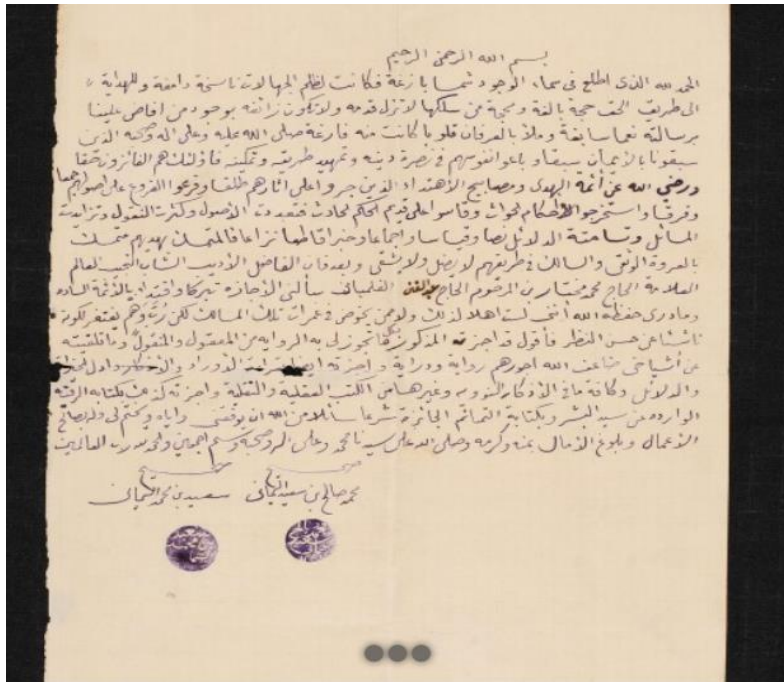 بسم الله الرحمن الرحيم
الحمد لله الذي اطلع في سماء الوجود شمسا بازغة فكانت لظلم الجهالات ناسخة دامغة وللهداية
الى طريق الحق حجة بالغة ومحجة من سلكها لا تزل قدمه ولا تكون زائغه بوجود من افاض علينا
برسالته نعما سابغة وملأ بالعرفان قلوبا كانت منه فارغة صلى الله عليه وعلى اله وصحبه الذين
سبقونا بالايمان سبقا وباعوا نفوسهم في نصرة دينه وتمهيد طريقه وتمكينه فاولئك هم الفائزون حقا
ورضي الله عن أئمة الهدى ومصابيح الاهتداء الذين جروا على اثارهم طلقا وفرعوا الفروع على اصولها جمعا
وفرقا واستخرجوا الاحكام للحوادث وقاسوا على قديم الحكم لحادث فتعددت الأصول وكثرت النقول وتزايدت
المسائل وتسامتة الدلائل نصا وقياسا واجماعا وخبرا قاطعا نزاعا فالمتمسك بهديهم متمسك
بالعروة الوثقى والسالك في طريقهم لا يضل ولا يشقى وبعد فان الفاضل الأديب الشاب النجيب العالم
العلامة الحاج محمد مختار بن المرحوم الحاج عبد الغني الفلمباني سألني الأجازه تبركا واقتداء بالأئمة الساده
وما درى حفظه الله أنني لست اهلا لذلك ولا ممن يخوض في غمرات تلك المسالك لكن رب وهم يغتفر لكونه
ناشئا عن حسن النظر فأقول قد اجزته المذكور بما تجوز لي به الروايه من المعقول والمنقول وما تلقيته
عن أشياخي ضاعف الله اجورهم رواية ودراية واجزته ايضا الأوراد والأذكار
والدلائل وكافة ما في الأذكار النوويه وغيرها من الكتب العقلية والنقلية واجزته كذلك بكتابه الرقيه
الوارده عن سيد البشر وبكتابة التمائم الجائزة شرعا سائلا من الله ان يوفقني واياه ويختم لي وله بصالح
الأعمال وبلوغ الآمال بمنه وكرمه وصلى الله على سيدنا محمد وعلى اله وصحبه وسلم اجمعين والحمد لله رب العالمين
محمد صالح بن سعيد اليماني سعيد بن محمد اليماني